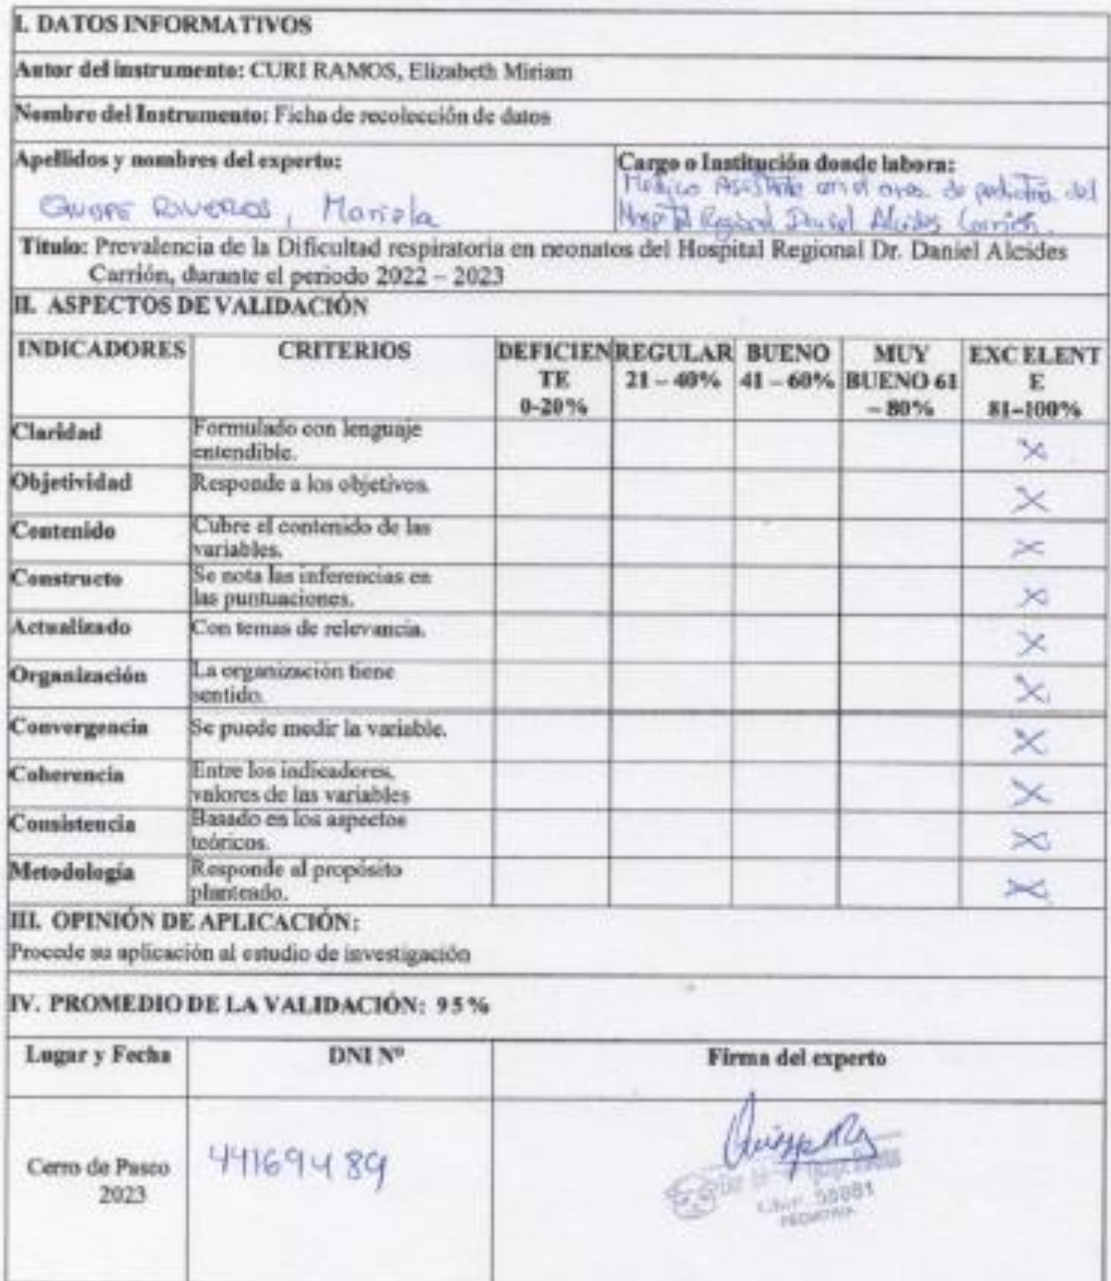 I. DATOS INFORMATIVOS
Autor del instrumento: CURI RAMOS, Elizabeth Miriam
Nombre del Instrumento: Ficha de recolección de datos
Apellidos y nombres del experto:
QUISPE RIVEROS, Mariela
Cargo o Institución donde labora:
Médico Asistente en el area de pediatria del
Hospital Regional Daniel Alcides Carrión.
Titulo: Prevalencia de la Dificultad respiratoria en neonatos del Hospital Regional Dr. Daniel Alcides
Carrión, durante el periodo 2022 – 2023
II. ASPECTOS DE VALIDACIÓN
INDICADORES CRITERIOS DEFICIEN REGULAR BUENO MUY EXCELENT
TE 21 – 40% 41 – 60% BUENO 61 E
0-20% – 80% 81-100%
Claridad Formulado con lenguaje
entendible. X
Objetividad Responde a los objetivos. X
Contenido Cubre el contenido de las
variables. X
Constructo Se nota las inferencias en
las puntuaciones. X
Actualizado Con temas de relevancia. X
Organización La organización tiene
sentido. X
Convergencia Se puede medir la variable. X
Coherencia Entre los indicadores,
valores de las variables X
Consistencia Basado en los aspectos
teóricos. X
Metodología Responde al propósito
planteado. X
III. OPINIÓN DE APLICACIÓN:
Procede su aplicación al estudio de investigación
IV. PROMEDIO DE LA VALIDACIÓN: 95%
Lugar y Fecha DNI Nº Firma del experto
Cerro de Pasco 44169489
2023
PEDIATRIA